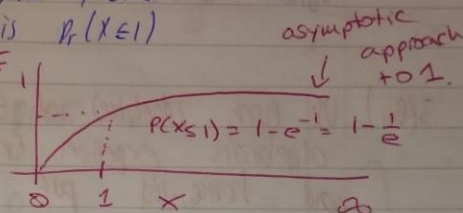 is Pr(X≤1)
asymptotic
approach
to 1.
1
P(X≤1) = 1-e⁻¹ = 1 - 1/e
0 1 X ∞